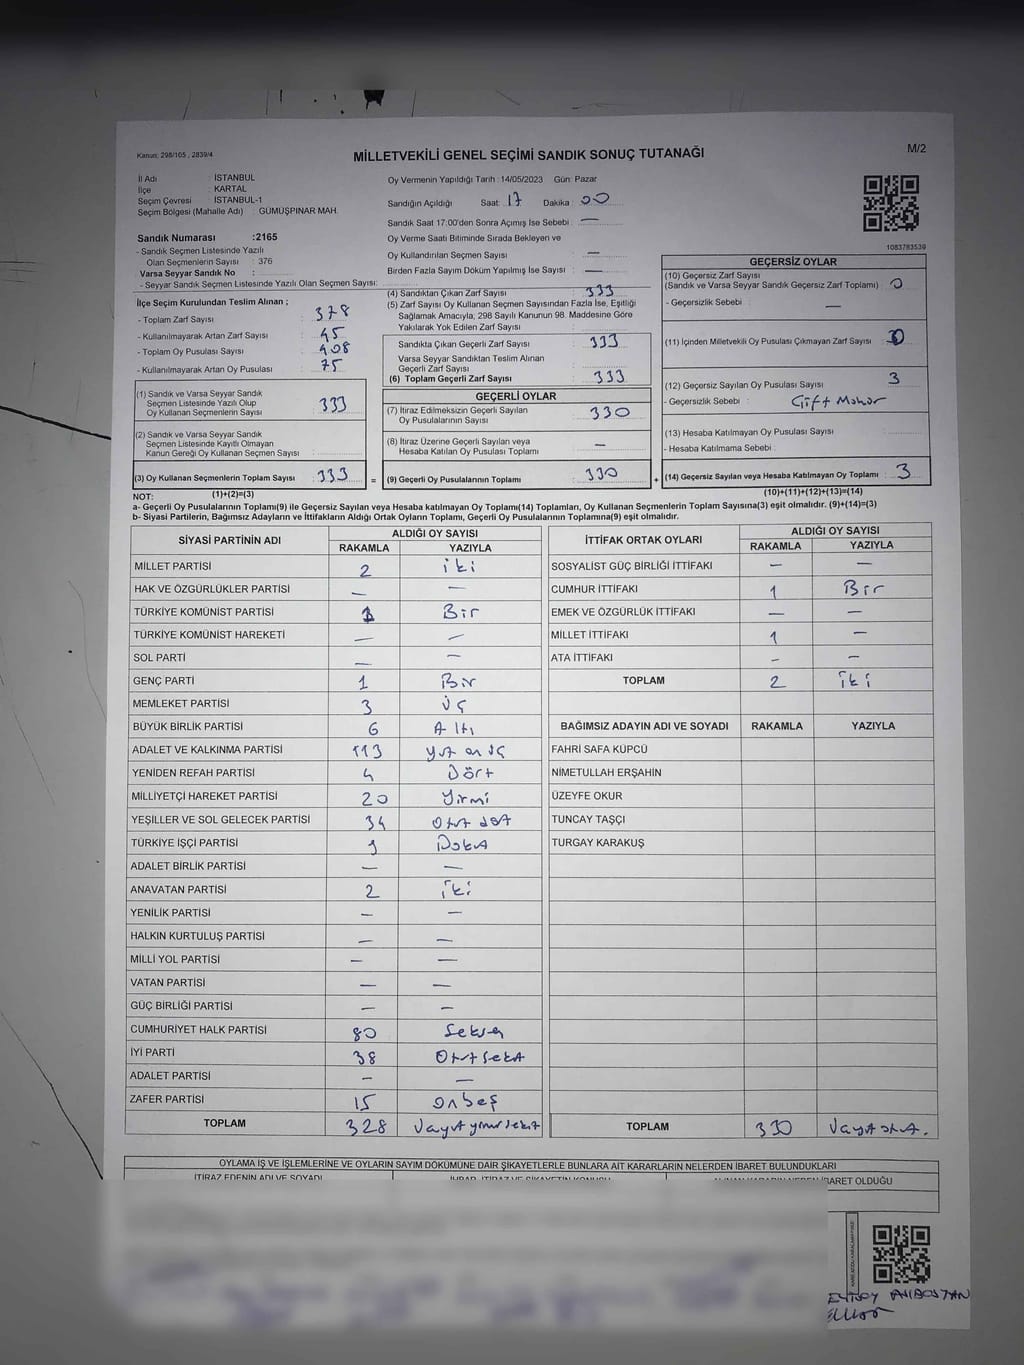 Kanun: 298/165 , 2839/4
MİLLETVEKİLİ GENEL SEÇİMİ SANDIK SONUÇ TUTANAĞI
M/2
İl Adı : İSTANBUL
İlçe : KARTAL
Seçim Çevresi : İSTANBUL-1
Seçim Bölgesi (Mahalle Adı) : GÜMÜŞPINAR MAH.
Sandık Numarası :2165
- Sandık Seçmen Listesinde Yazılı
Olan Seçmenlerin Sayısı : 376
Varsa Seyyar Sandık No :
- Seyyar Sandık Seçmen Listesinde Yazılı Olan Seçmen Sayısı:
İlçe Seçim Kurulundan Teslim Alınan ;
- Toplam Zarf Sayısı : 378
- Kullanılmayarak Artan Zarf Sayısı : 45
- Toplam Oy Pusulası Sayısı : 408
- Kullanılmayarak Artan Oy Pusulası : 75
(1) Sandık ve Varsa Seyyar Sandık
Seçmen Listesinde Yazılı Olup
Oy Kullanan Seçmenlerin Sayısı : 333
(2) Sandık ve Varsa Seyyar Sandık
Seçmen Listesinde Kayıtlı Olmayan
Kanun Gereği Oy Kullanan Seçmen Sayısı :
(3) Oy Kullanan Seçmenlerin Toplam Sayısı : 333
(1)+(2)=(3)
Oy Vermenin Yapıldığı Tarih : 14/05/2023 Gün: Pazar
Sandığın Açıldığı Saat: 17 Dakika : 00
Sandık Saat 17:00'den Sonra Açımış İse Sebebi : —
Oy Verme Saati Bitiminde Sırada Bekleyen ve
Oy Kullandırılan Seçmen Sayısı : —
Birden Fazla Sayım Döküm Yapılmış İse Sayısı : —
(4) Sandıktan Çıkan Zarf Sayısı : 333
(5) Zarf Sayısı Oy Kullanan Seçmen Sayısından Fazla İse, Eşitliği
Sağlamak Amacıyla, 298 Sayılı Kanunun 98. Maddesine Göre
Yakılarak Yok Edilen Zarf Sayısı :
Sandıkta Çıkan Geçerli Zarf Sayısı : 333
Varsa Seyyar Sandıktan Teslim Alınan
Geçerli Zarf Sayısı :
(6) Toplam Geçerli Zarf Sayısı : 333
GEÇERLİ OYLAR
(7) İtiraz Edilmeksizin Geçerli Sayılan
Oy Pusulalarının Sayısı : 330
(8) İtiraz Üzerine Geçerli Sayılan veya
Hesaba Katılan Oy Pusulası Toplamı : —
= (9) Geçerli Oy Pusulalarının Toplamı : 330 +
1083783539
GEÇERSİZ OYLAR
(10) Geçersiz Zarf Sayısı
(Sandık ve Varsa Seyyar Sandık Geçersiz Zarf Toplamı) : 0
- Geçersizlik Sebebi : —
(11) İçinden Milletvekili Oy Pusulası Çıkmayan Zarf Sayısı : 0
(12) Geçersiz Sayılan Oy Pusulası Sayısı : 3
- Geçersizlik Sebebi : Çift Mühür
(13) Hesaba Katılmayan Oy Pusulası Sayısı :
- Hesaba Katılmama Sebebi :
(14) Geçersiz Sayılan veya Hesaba Katılmayan Oy Toplamı : 3
(10)+(11)+(12)+(13)=(14)
NOT:
a- Geçerli Oy Pusulalarının Toplamı(9) ile Geçersiz Sayılan veya Hesaba katılmayan Oy Toplamı(14) Toplamları, Oy Kullanan Seçmenlerin Toplam Sayısına(3) eşit olmalıdır. (9)+(14)=(3)
b- Siyasi Partilerin, Bağımsız Adayların ve İttifakların Aldığı Ortak Oyların Toplamı, Geçerli Oy Pusulalarının Toplamına(9) eşit olmalıdır.
SİYASİ PARTİNİN ADI ALDIĞI OY SAYISI
RAKAMLA YAZIYLA
MİLLET PARTİSİ 2 iki
HAK VE ÖZGÜRLÜKLER PARTİSİ — —
TÜRKİYE KOMÜNİST PARTİSİ 1 Bir
TÜRKİYE KOMÜNİST HAREKETİ — —
SOL PARTİ — —
GENÇ PARTİ 1 Bir
MEMLEKET PARTİSİ 3 üç
BÜYÜK BİRLİK PARTİSİ 6 Altı
ADALET VE KALKINMA PARTİSİ 113 yüz on üç
YENİDEN REFAH PARTİSİ 4 Dört
MİLLİYETÇİ HAREKET PARTİSİ 20 Yirmi
YEŞİLLER VE SOL GELECEK PARTİSİ 34 Otuz dört
TÜRKİYE İŞÇİ PARTİSİ 9 Dokuz
ADALET BİRLİK PARTİSİ — —
ANAVATAN PARTİSİ 2 iki
YENİLİK PARTİSİ — —
HALKIN KURTULUŞ PARTİSİ — —
MİLLİ YOL PARTİSİ — —
VATAN PARTİSİ — —
GÜÇ BİRLİĞİ PARTİSİ — —
CUMHURİYET HALK PARTİSİ 80 Seksen
İYİ PARTİ 38 Otuz sekiz
ADALET PARTİSİ — —
ZAFER PARTİSİ 15 onbeş
TOPLAM 328 üçyüz yirmi sekiz
İTTİFAK ORTAK OYLARI ALDIĞI OY SAYISI
RAKAMLA YAZIYLA
SOSYALİST GÜÇ BİRLİĞİ İTTİFAKI — —
CUMHUR İTTİFAKI 1 Bir
EMEK VE ÖZGÜRLÜK İTTİFAKI — —
MİLLET İTTİFAKI 1 —
ATA İTTİFAKI - —
TOPLAM 2 iki
BAĞIMSIZ ADAYIN ADI VE SOYADI RAKAMLA YAZIYLA
FAHRİ SAFA KÜPCÜ
NİMETULLAH ERŞAHİN
ÜZEYFE OKUR
TUNCAY TAŞÇI
TURGAY KARAKUŞ
TOPLAM 330 üçyüz otuz.
OYLAMA İŞ VE İŞLEMLERİNE VE OYLARIN SAYIM DÖKÜMÜNE DAİR ŞİKAYETLERLE BUNLARA AİT KARARLARIN NELERDEN İBARET BULUNDUKLARI
İTİRAZ EDENİN ADI VE SOYADI